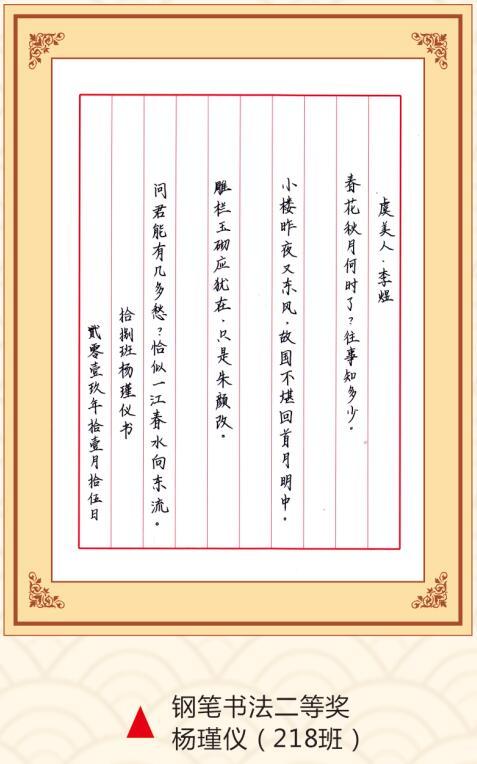 虞美人·李煜
春花秋月何时了？往事知多少。
小楼昨夜又东风，故国不堪回首月明中。
雕栏玉砌应犹在，只是朱颜改。
问君能有几多愁？恰似一江春水向东流。
拾捌班杨瑾仪书
贰零壹玖年拾壹月拾伍日
钢笔书法二等奖
杨瑾仪（218班）